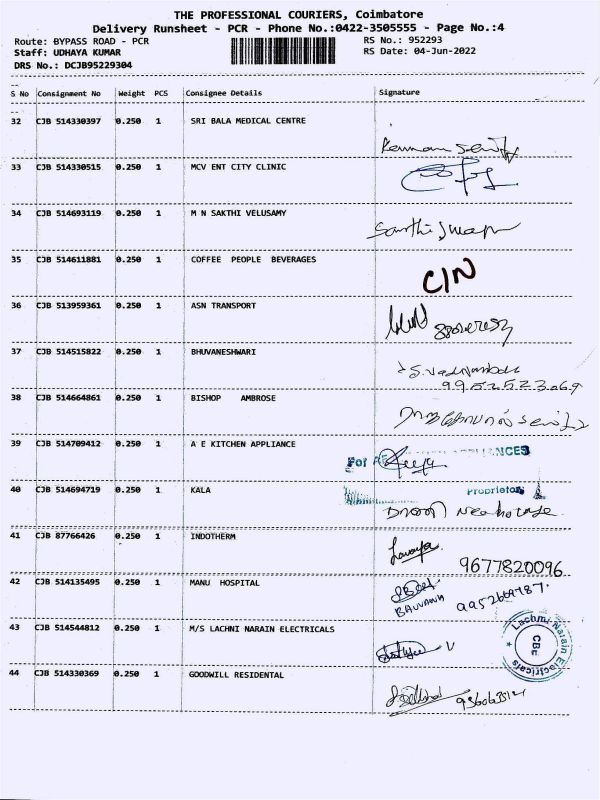 THE PROFESSIONAL COURIERS, Coimbatore
Delivery Runsheet - PCR - Phone No.:0422-3505555 - Page No.:4
Route: BYPASS ROAD - PCR RS No.: 952293
Staff: UDHAYA KUMAR RS Date: 04-Jun-2022
DRS No.: DCJB95229304
S No Consignment No Weight PCS Consignee Details Signature
32 CJB 514330397 0.250 1 SRI BALA MEDICAL CENTRE
33 CJB 514330515 0.250 1 MCV ENT CITY CLINIC
34 CJB 514693119 0.250 1 M N SAKTHI VELUSAMY
35 CJB 514611881 0.250 1 COFFEE PEOPLE BEVERAGES
C/N
36 CJB 513959361 0.250 1 ASN TRANSPORT
37 CJB 514515822 0.250 1 BHUVANESHWARI
9952523069
38 CJB 514664861 0.250 1 BISHOP AMBROSE
39 CJB 514709412 0.250 1 A E KITCHEN APPLIANCE
For
40 CJB 514694719 0.250 1 KALA
Proprietor
41 CJB 87766426 0.250 1 INDOTHERM
9677820096
42 CJB 514135495 0.250 1 MANU HOSPITAL
BAUVANA
43 CJB 514544812 0.250 1 M/S LACHNI NARAIN ELECTRICALS
Lachmi Narain Electricals
CBE
44 CJB 514330369 0.250 1 GOODWILL RESIDENTAL